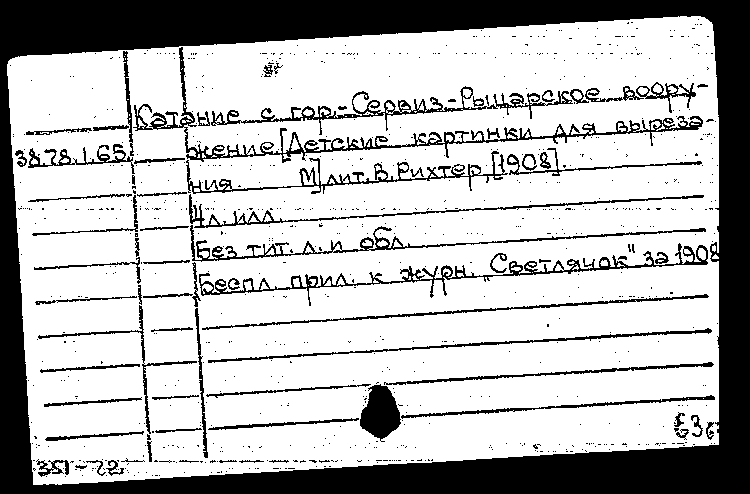 Катание с гор.-Сервиз-Рыцарское воору-
38.78.1.65. жение.[Детские картинки для выреза-
ния. М], лит. В. Рихтер, [1908].
4л. илл.
Без тит. л. и обл.
Беспл. прил. к журн. „Светлячок" за 1908
351-72.